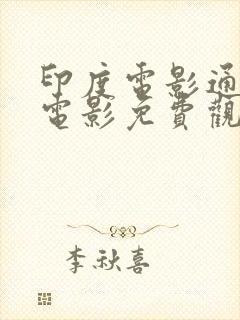 印度電影通
電影免費觀
李秋喜